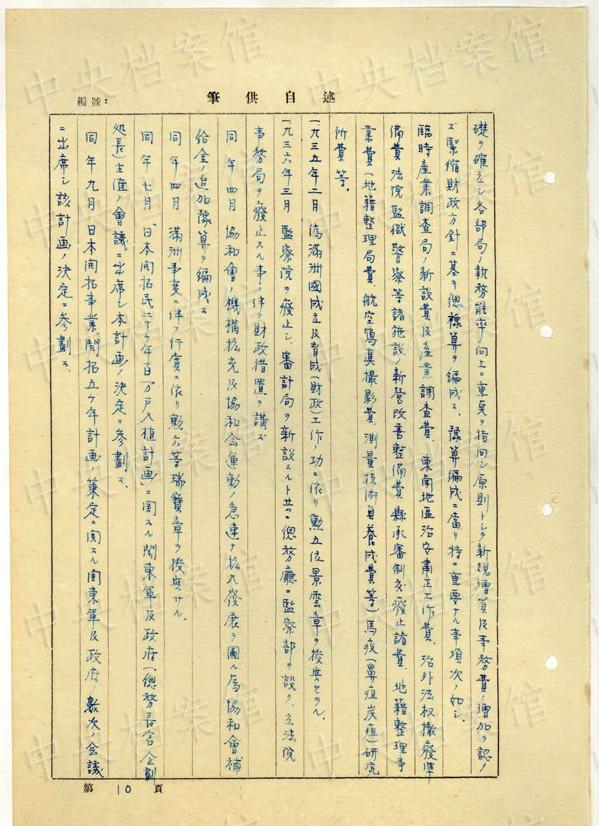 編號：
筆供自述
礎ヲ確立シ各部局ノ執務能率ノ向上ニ重点ヲ指向シ原則トシテ新規增員及事務費ノ增加ヲ認メ
ズ緊縮財政方針ニ基キ總豫算ヲ編成ス、豫算編成ニ當リ特ニ重要ナル事項次ノ如シ
臨時産業調查局ノ新設費及産業調查費、東南地區治安肅正工作費、治外法权撤廢準
備費(法院監獄警察等諸施設ノ新營改善整備費、縣承審制度廢止諸費、地籍整理事
業費(地籍整理局費、航空寫真撮影費、測量技術員養成費等)馬疫(鼻疽炭疽)研究
所費等。
一九三五年二月 偽滿洲國成立及育成(財政)工作ノ功ニ依リ勳五位景雲章ヲ授與セラル
一九三六年三月 監察院ヲ廢止シ、審計局ヲ新設スルト共ニ總務廳ニ監察部ヲ設ク、立法院
事務局ヲ廢止スル事ニ伴フ財政措置ヲ講ズ
同年四月 協和會ノ機構拡充及協和会運動ノ急速ナ拡大發展ヲ圖ル爲協和會補
給金ノ追加豫算ヲ編成ス
同年四月 滿洲事変ニ伴フ行賞ニ依リ勳六等瑞寶章ヲ授與サル
同年七月「日本開拓民二十ケ年百万戸入植計画」ニ関スル関東軍及政府(總務長官企劃
処長)主催ノ會議ニ出席シ本計画ノ決定ニ参劃ス
同年九月 日本開拓事業第一期五ケ年計画ノ策定ニ関スル関東軍及政府ノ数次ノ会議
ニ出席シ該計画ノ決定ニ参劃ス
第 10 頁
中央档案馆